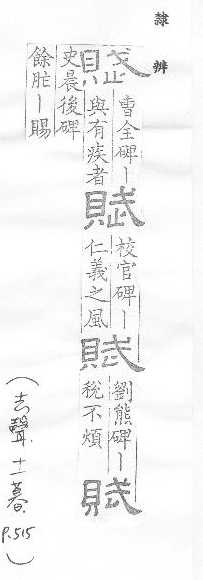 隸辨
賦
曹全碑丨
與有疾者
賦
校官碑丨
仁義之風
賦
劉熊碑丨
稅不煩
賦
史晨後碑
餘胙丨賜
(去聲十一暮 P.515)